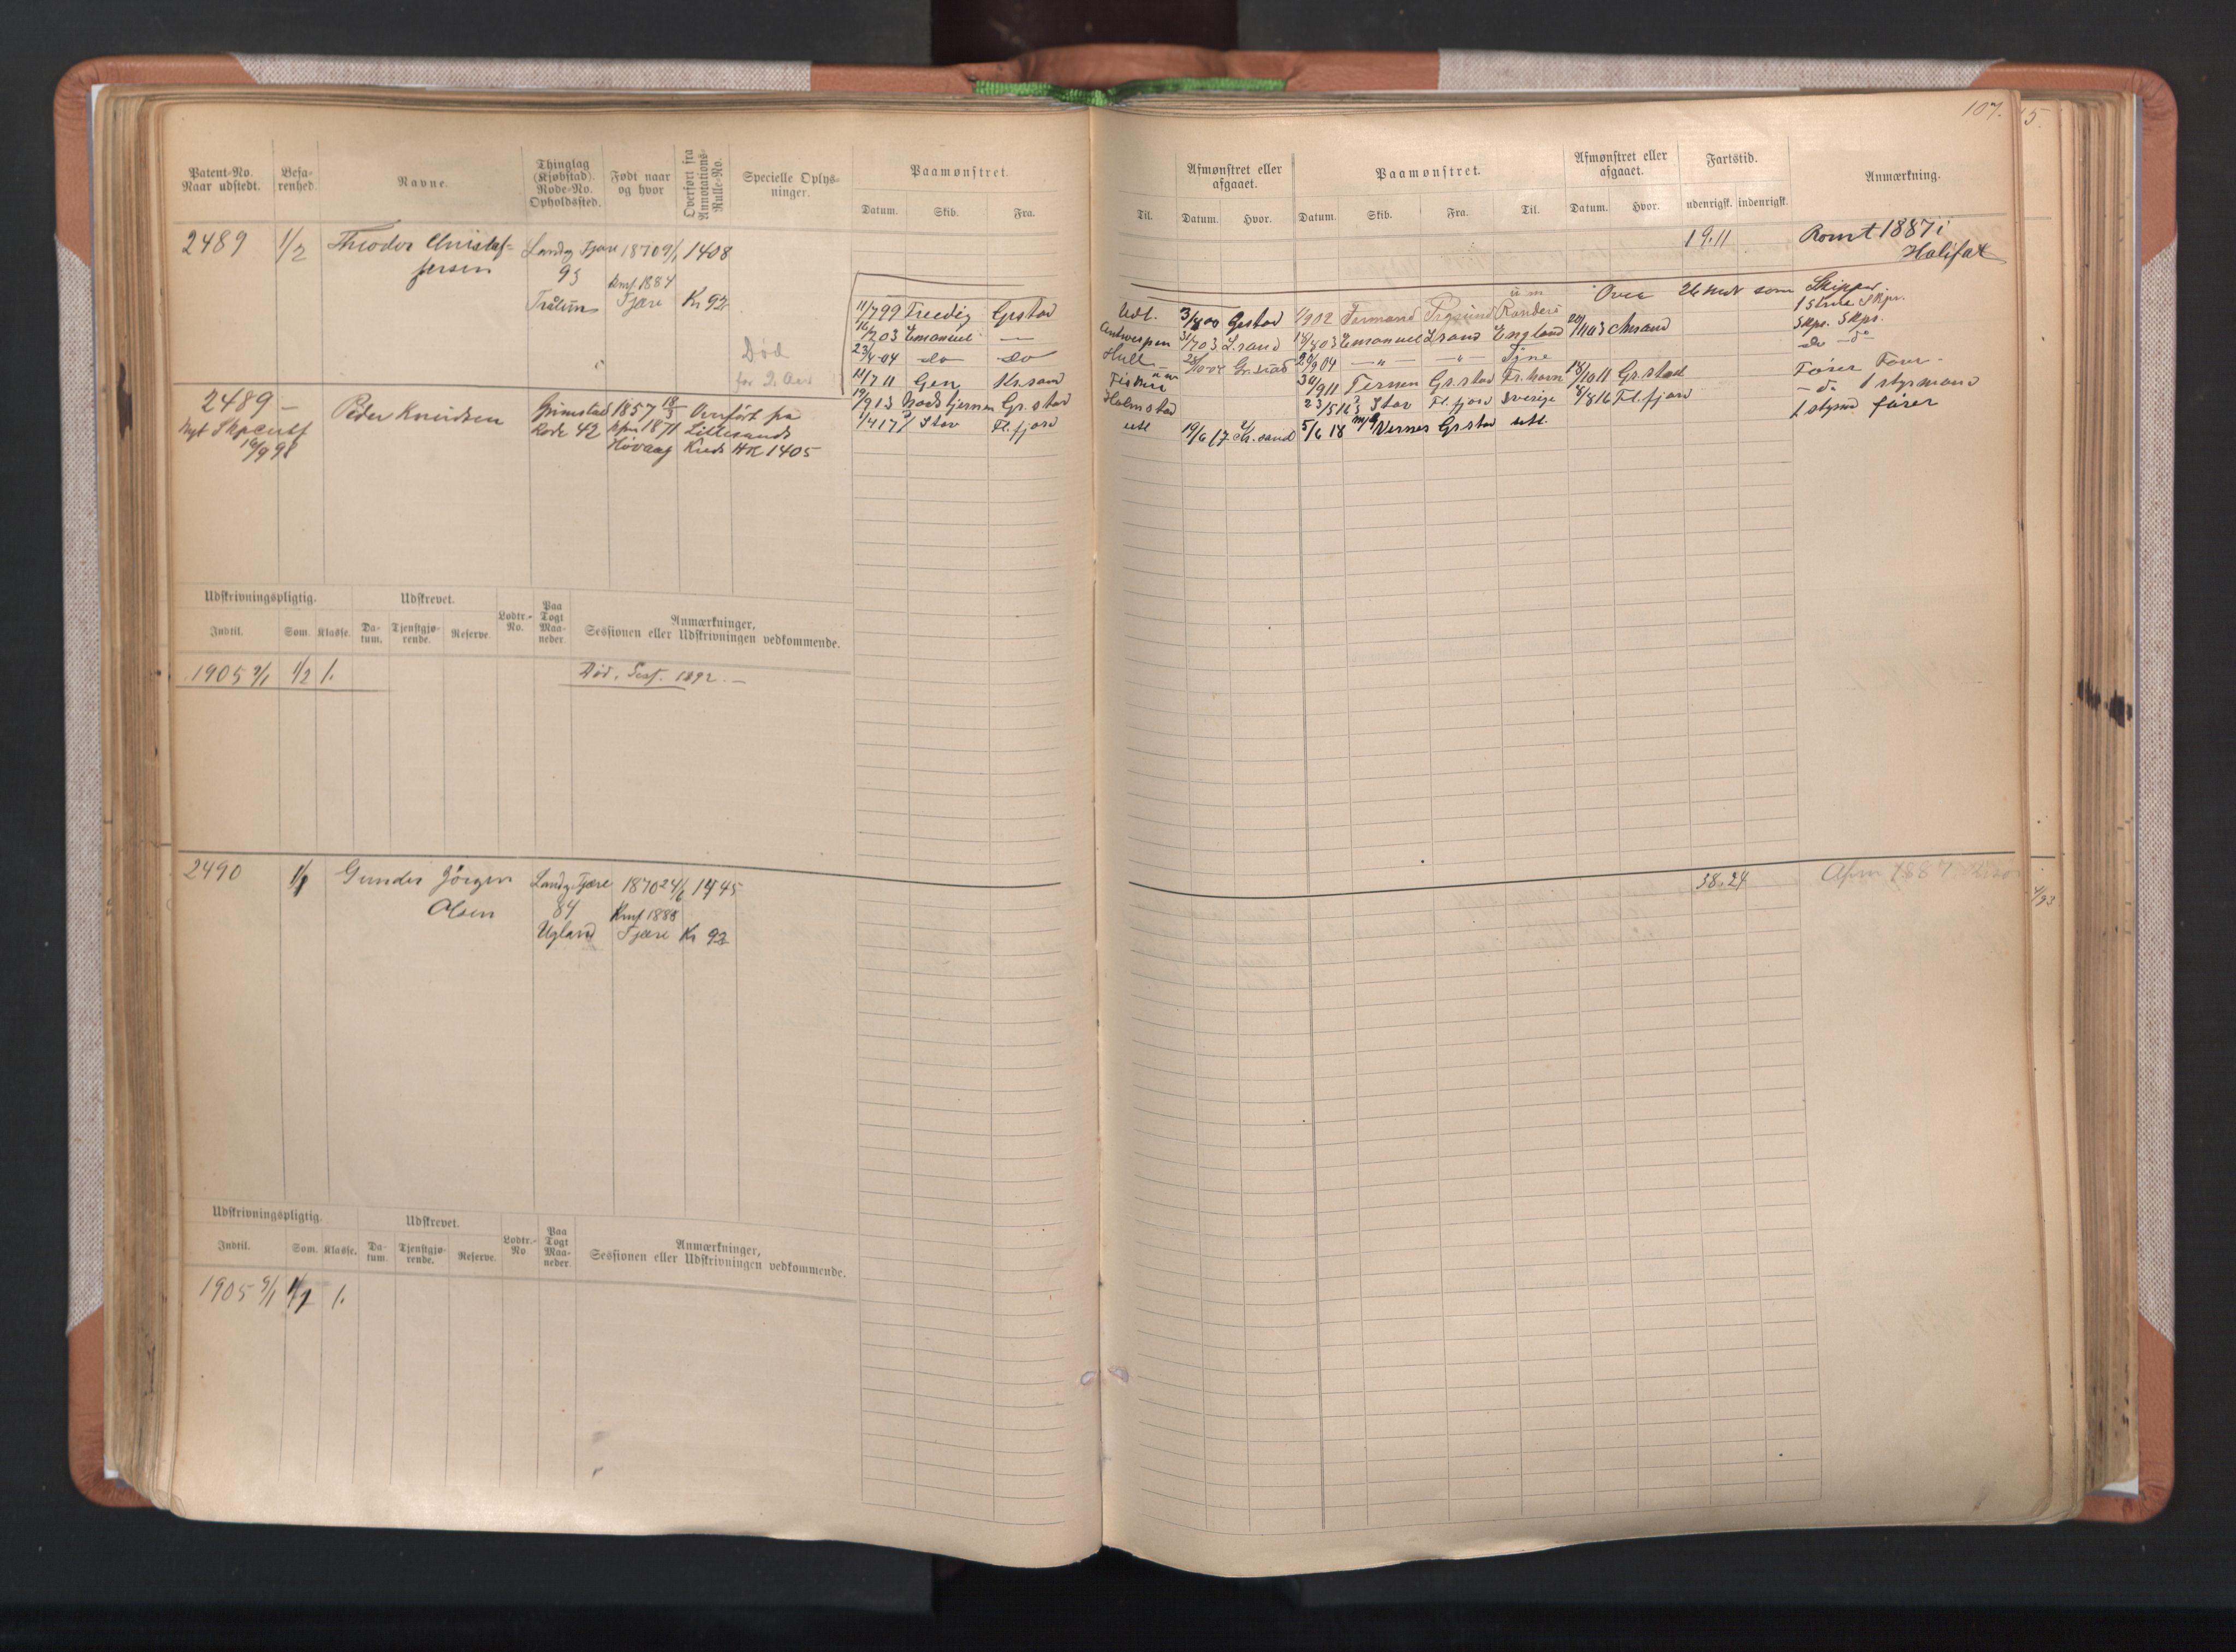 107.
Patent-No. Naar udstedt.
Befarenhed.
Navne.
Thinglag (Kjøbstad). Rode-No. Opholdssted.
Født naar og hvor
Overført fra Annotations-Rulle-No.
Specielle Oplysninger.
Paamønstret.
Datum. Skib. Fra.
Til.
Afmønstret eller afgaaet.
Datum. Hvor.
Paamønstret.
Datum. Skib. Fra. Til.
Afmønstret eller afgaaet.
Datum. Hvor.
Fartstid.
udenrigsk. indenrigsk.
Anmærkning.
2489 1/2 Theodor Christof-
fersen
Landv. Fjære
93
1870 9/1 1408
Knf 1884
Fjære Kr 92
19.11
Romt 1887 i
Halifax
Død
for 2 Aar
Over 26 Mdr som Skipper
11/7 99 Grstad
Udt. 3/8 00 Grstad
16/7 03 Emanuel
Antwerpen 31/7 03 L.sand Emanuel L.sand England 20/11 03
23/4 04 do do
Hull Gr.stad 20/9 04
11/7 11 Gen Kr.sand
30/9 11 Ternen Gr.stad Fr.havn 18/10 11 Gr.stad
Fører
19/9 13 Gr.stad
Holmstad 23/5 16 Stav Fl.fjord Sverige 8/8 16 Fl.fjord
1 styrmand
1/4 17 Stav Fl.fjord
utl 19/6 17 Kr.sand 5/6 18 Vernes Gr.stad utl.
1 styrmd fører
2489 –
Nyt
16/9 98
Peder Knudsen
Grimstad
Rode 42
1857 18/3
1871
Høvaag
Overført fra
Lillesands
Kreds HR 1405
Udskrivningspligtig.
Indtil. Som. Klasse.
Udskrevet.
Datum. Tjenstgjørende. Reserve.
Lodtr.-No.
Paa Togt Maaneder.
Anmærkninger,
Sessionen eller Udskrivningen vedkommende.
1905 9/1 1/2 1.
Død, Sesf. 1892. –
2490 1/1 Gunder Jörgen
Olsen
Landv. Fjære
84
Ugland
1870 24/6 1445
Knf 1888
Fjære Kr 92
38.24
1887
Udskrivningspligtig.
Indtil. Som. Klasse.
Udskrevet.
Datum. Tjenstgjørende. Reserve.
Lodtr.-No
Paa Togt Maaneder.
Anmærkninger,
Sessionen eller Udskrivningen vedkommende.
1905 9/1 1.